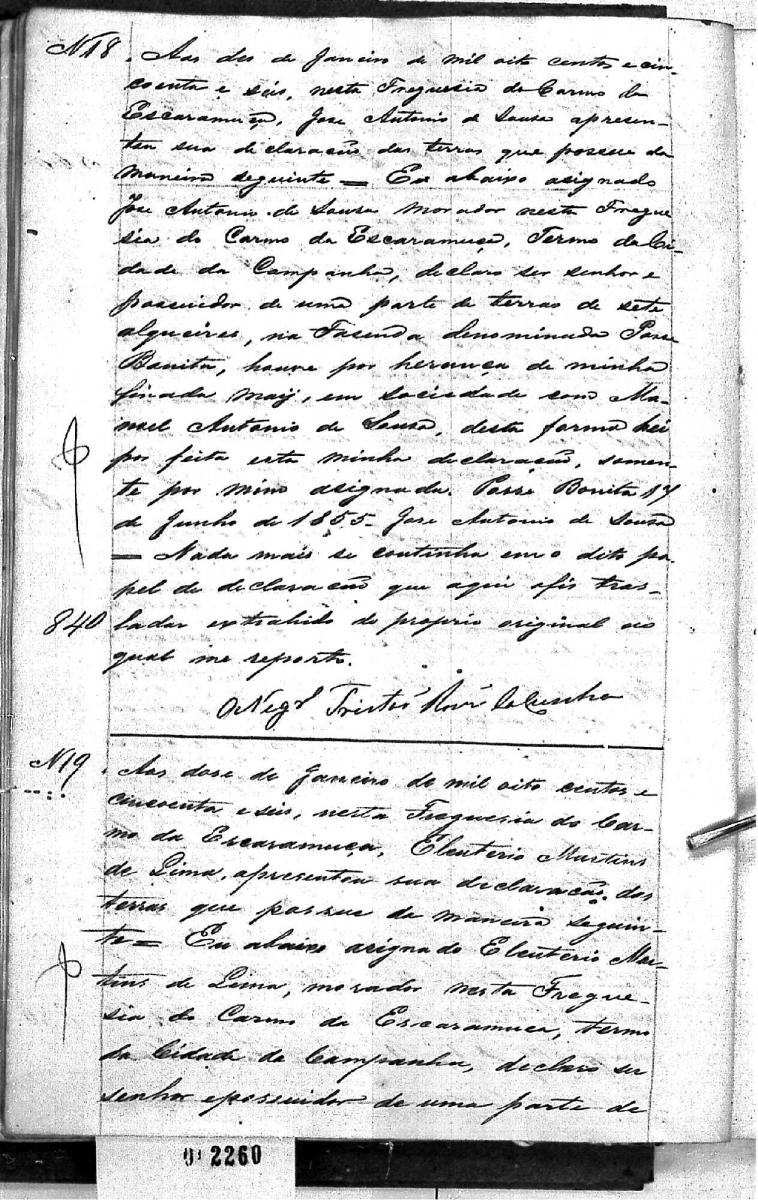 N18. Aos des de Janeiro de mil oito centos e cin-
coenta e seis, nesta Freguesia do Carmo da
Escaramuça, Jose Antonio de Sousa apresen-
tou sua declaração das terras que possue da
maneira seguinte = Eu abaixo asignado
Jose Antonio de Sousa morador nesta Fregue
sia do Carmo da Escaramuça, Termo da Ci-
dade da Campanha, declaro ser senhor e
possuidor de uma parte de terras de sete
alqueires, na Fasenda denominada Posse
Bonita, houve por herança de minha
finada maÿ, em sociedade com Ma-
noel Antonio de Sousa, desta forma hei
por feita esta minha declaração, somen-
te por mim asignada. Posse Bonita 17
de Junho de 1855. Jose Antonio de Sousa
= Nada mais se continha em o dito pa-
pel de declaração que aqui afis tras-
840 ladar extrahido do proprio original ao
qual me reporto.
O Vegr.º Tristão da Cunha
N19. Aos dose de Janeiro de mil oito centos e
cincoenta e seis, nesta Freguesia do Car-
mo da Escaramuça, Eleuterio Martins
de Lima, apresentou sua declaração das
terras que possue da maneira seguin-
te = Eu abaixo asignado Eleuterio Mar-
tins de Lima, morador nesta Fregue-
sia do Carmo da Escaramuca, termo
da Cidade da Campanha, declaro ser
senhor e possuidor de uma parte de
2260